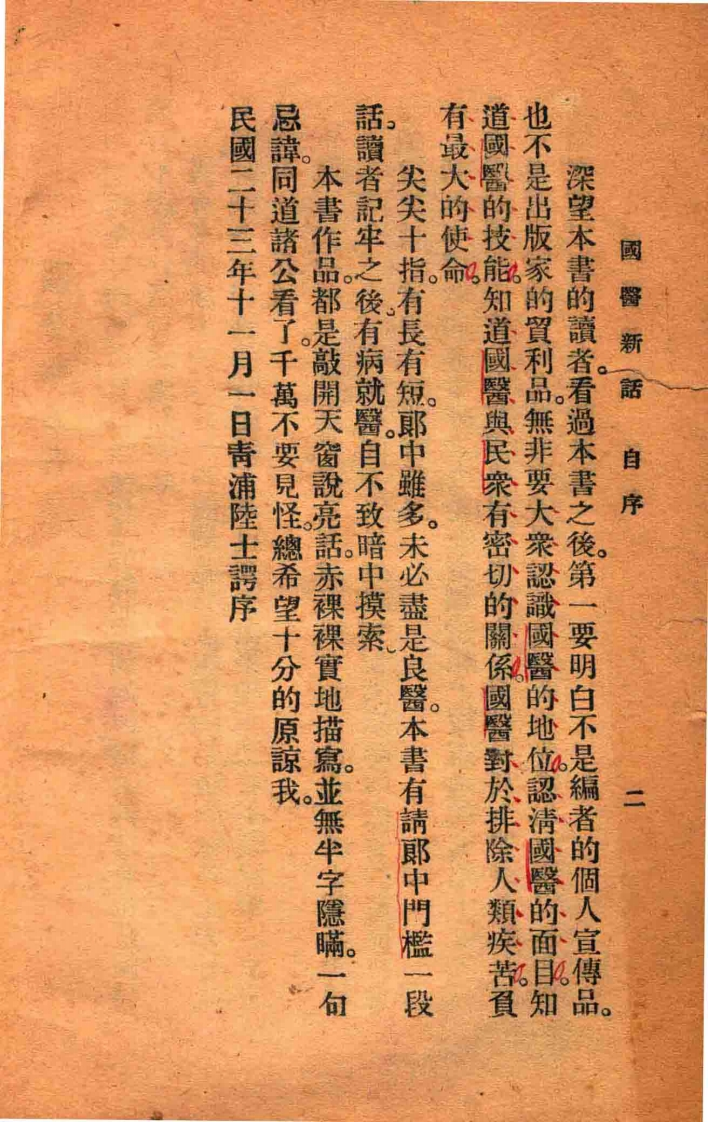 國醫新話 自序 二
深望本書的讀者。看過本書之後。第一要明白不是編者的個人宣傳品。
也不是出版家的貿利品。無非要大衆認識國醫的地位。認清國醫的面目。知
道國醫的技能。知道國醫與民衆有密切的關係。國醫對於排除人類疾苦。負
有最大的使命。
尖尖十指。有長有短。郞中雖多。未必盡是良醫。本書有請郞中門檻一段
話。讀者記牢之後。有病就醫。自不致暗中摸索。
本書作品。都是敲開天窗說亮話。赤裸裸實地描寫。並無半字隱瞞。一句
忌諱。同道諸公看了。千萬不要見怪。總希望十分的原諒我。
民國二十三年十一月一日靑浦陸士諤序